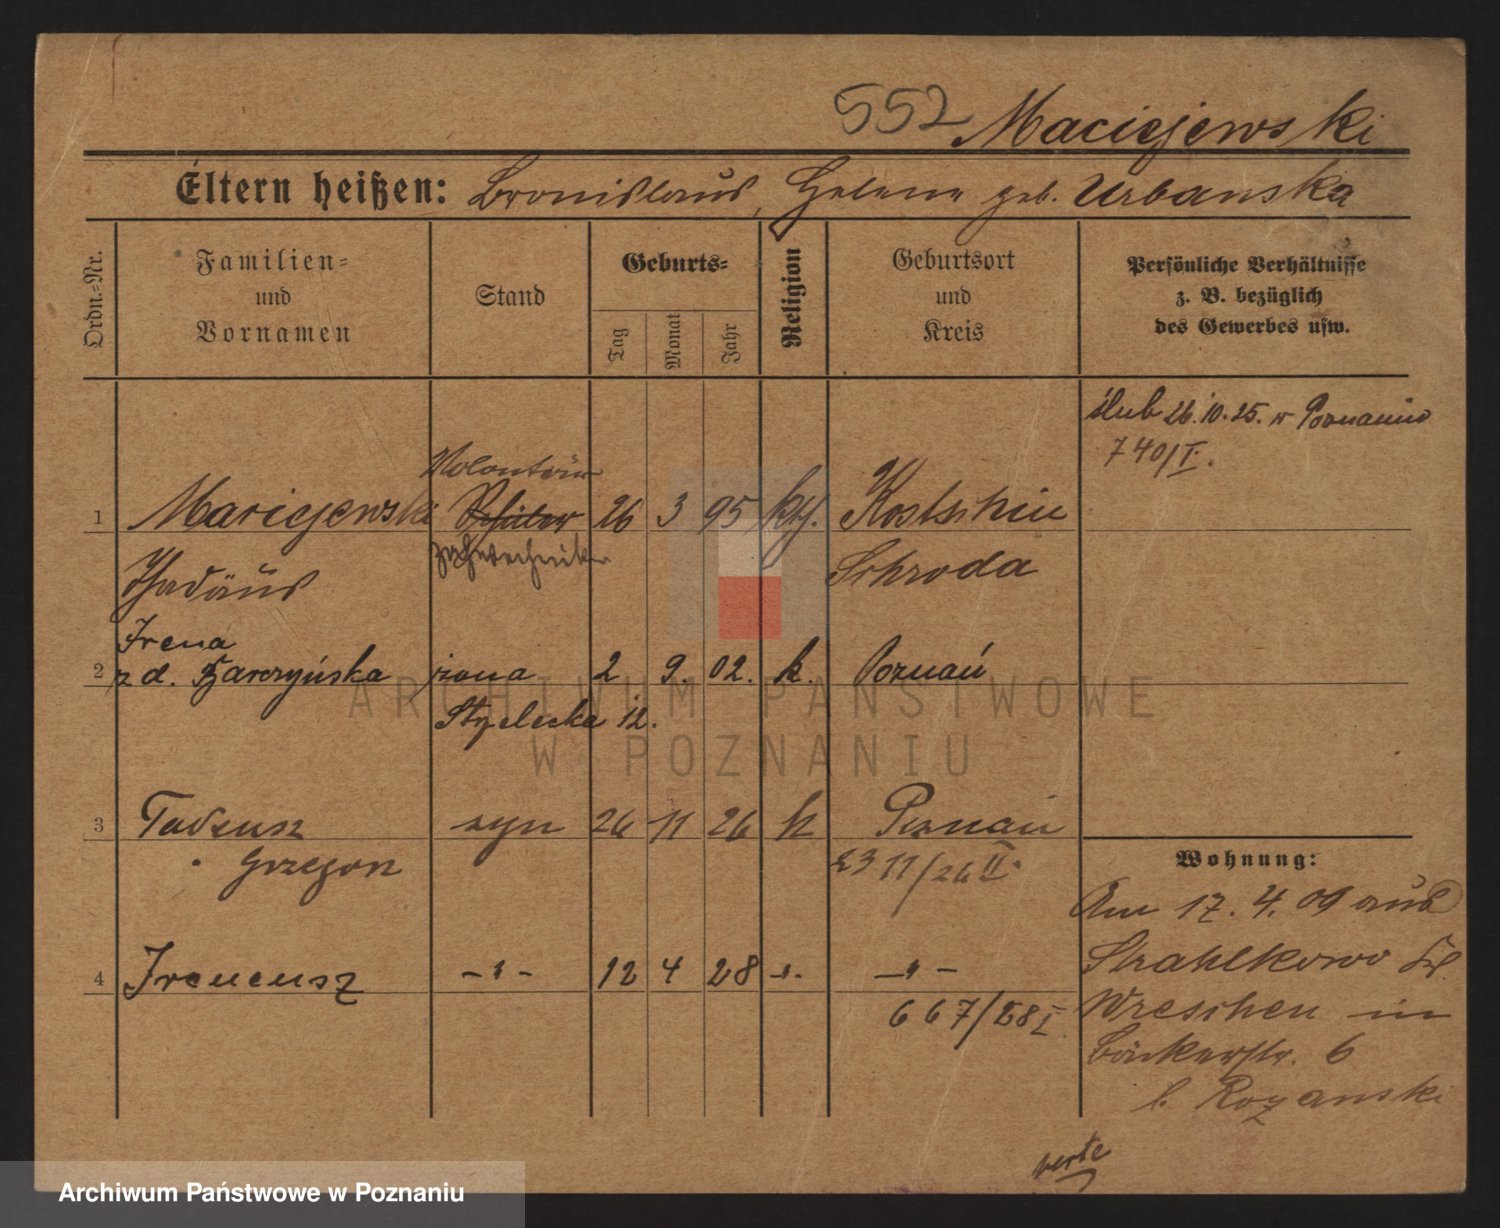 552 Maciejewski
Eltern heißen: Bronislaus, Helene geb. Urbanska
Ordn.-Nr.
Familien-
und
Vornamen
Stand
Geburts-
Tag
Monat
Jahr
Religion
Geburtsort
und
Kreis
Persönliche Verhältnisse
z. B. bezüglich
des Gewerbes usw.
ślub 26.10.25. w Poznaniu
740/I.
Volontär
1 Maciejewski Schüler 26 3 95 kth. Kostschin
Zahntechniker
Thadäus Schroda
Irena
2 z d. żona 2 9. 02. k. Poznań
Strzelecka 12.
3 Tadeusz syn 26 11 26 k Poznań
Grzegorz 2311/26 II.
4 Ireneusz -"- 12 4 28 -"- -"-
667/28 I.
Wohnung:
Am 17. 4. 09 aus
Strahlkowo Kr.
Wreschen in
Bäckerstr. 6
b. Rozanski
verte
ARCHIWUM PAŃSTWOWE
W POZNANIU
Archiwum Państwowe w Poznaniu